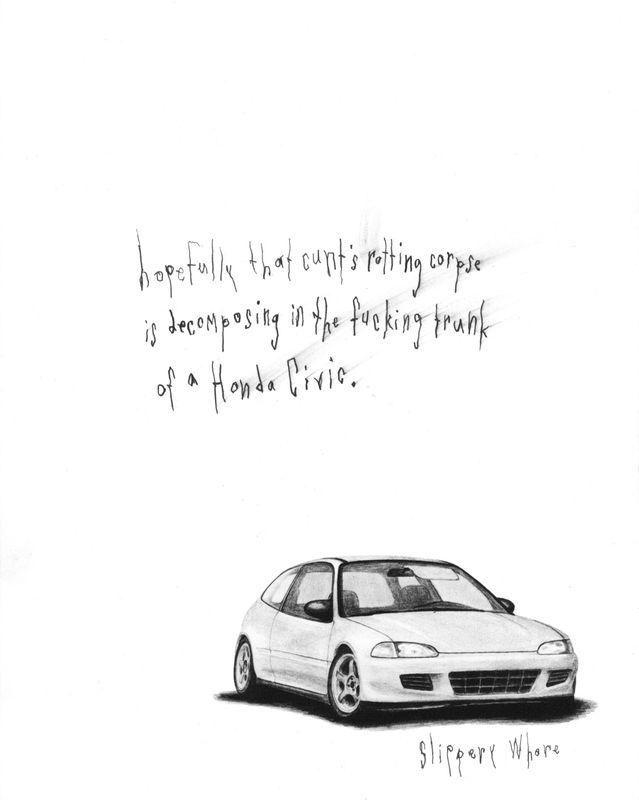 hopefully that cunt's rotting corpse
is decomposing in the fucking trunk
of a Honda Civic.
Slippery Whore